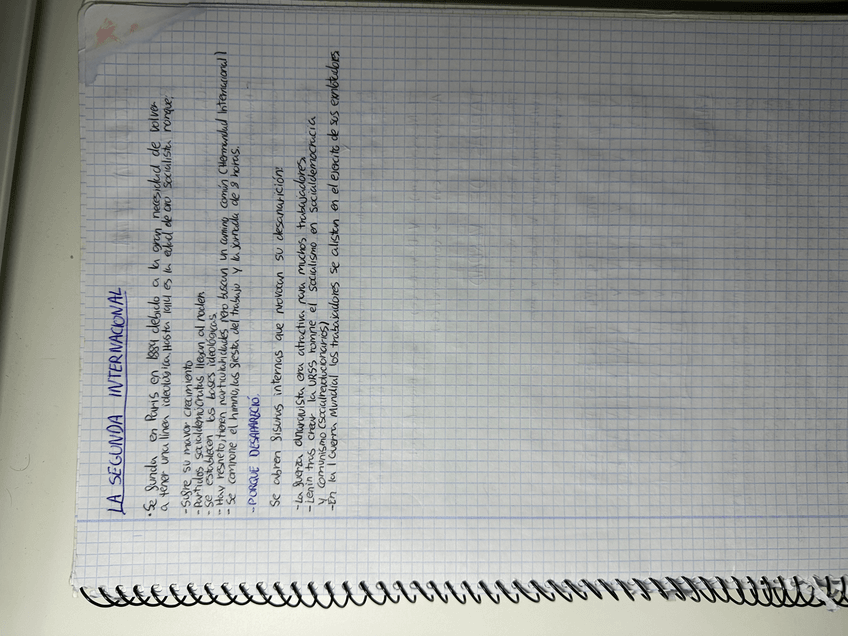 LA SEGUNDA INTERNACIONAL
• Se funda en Paris en 1889 debido a la gran necesidad de volver
a tener una línea ideológica. Hasta 1914 es la edad de oro socialista porque:
- Sufre su mayor crecimiento
- Partidos socialdemócratas llegan al poder
- Se establecen las bases ideológicas
- Hay respeto, tienen particularidades pero buscan un camino común (Hermandad Internacional)
- Se compone el himno, las fiesta del trabajo y la jornada de 8 horas.
- PORQUE DESAPARECIÓ.
Se abren fisuras internas que provocan su desaparición:
- La fuerza anarquista era atractiva para muchos trabajadores.
- Lenin tras crear la URSS rompe el socialismo en socialdemocracia
y comunismo (socialrevolucionarios)
- En la I Guerra Mundial los trabajadores se alistan en el ejercito de sus explotadores